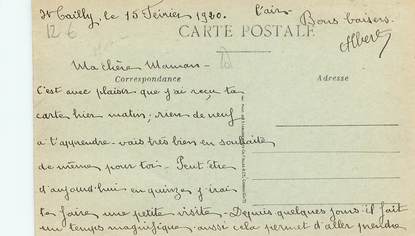 St Cailly, le 15 Février 1920.
l'air
Bons baisers.
Albert
12 €
CARTE POSTALE
Ma chère Maman -
Correspondance
Adresse
C'est avec plaisir que j'ai reçu ta
carte hier matin; rien de neuf
à t'apprendre - vais très bien en souhaite
de même pour toi - Peut être
d'aujourd'hui en quinze j'irai
te faire une petite visite. - Depuis quelques jours il fait
un temps magnifique aussi cela permet d'aller prendre